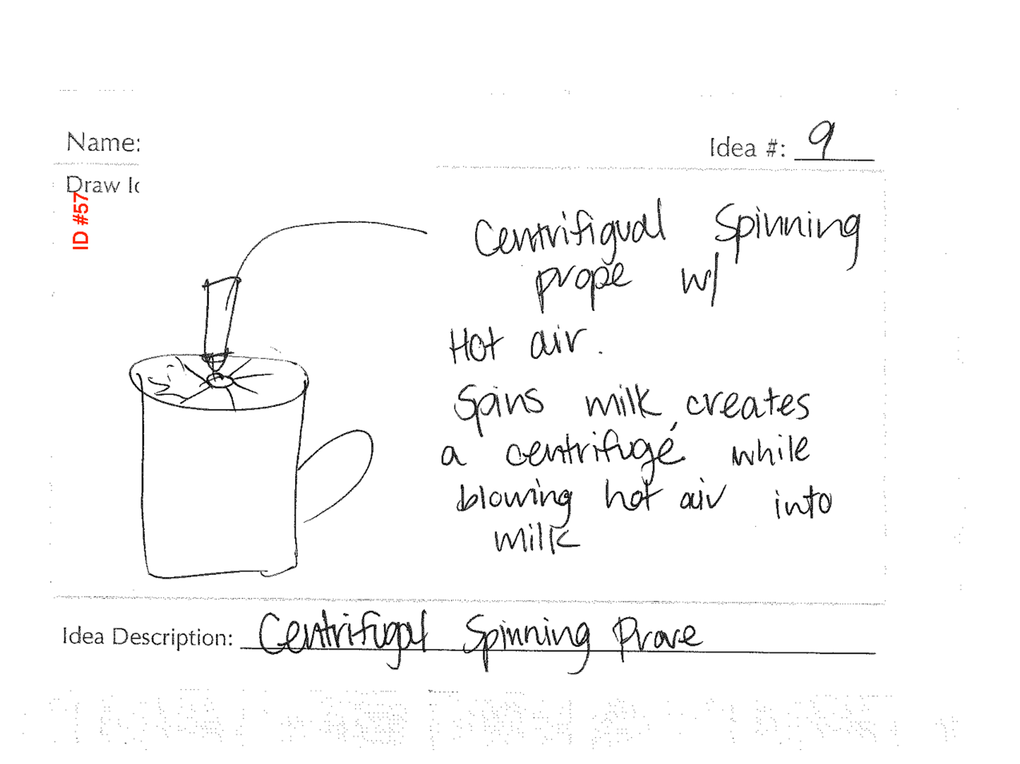 Name:
Idea #: 9
Draw Id
ID #57
Centrifigual Spinning
prope w/
Hot air.
Spins milk, creates
a centrifuge while
blowing hot air into
milk
Idea Description: Centrifugal Spinning Prove